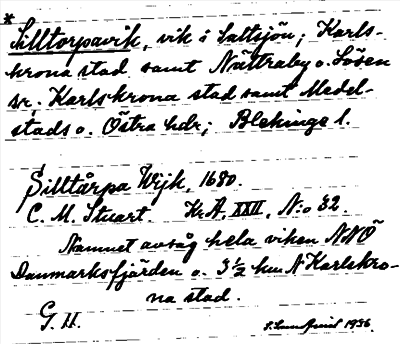 *
Silltorpavik, vik i Saltsjön; Karls-
krona stad samt Nättraby o. Lösen
sr. Karlskrona stad samt Medel-
stads o. Östra hdr; Blekinge l.
Silltårpa Wijk, 1680.
C. M. Stuart. Kr.A. XXII, N:o 32.
Namnet avsåg hela viken NNÖ
Danmarksfjärden o. 3 1/2 km N Karlskro-
na stad.
G. H.
1956.